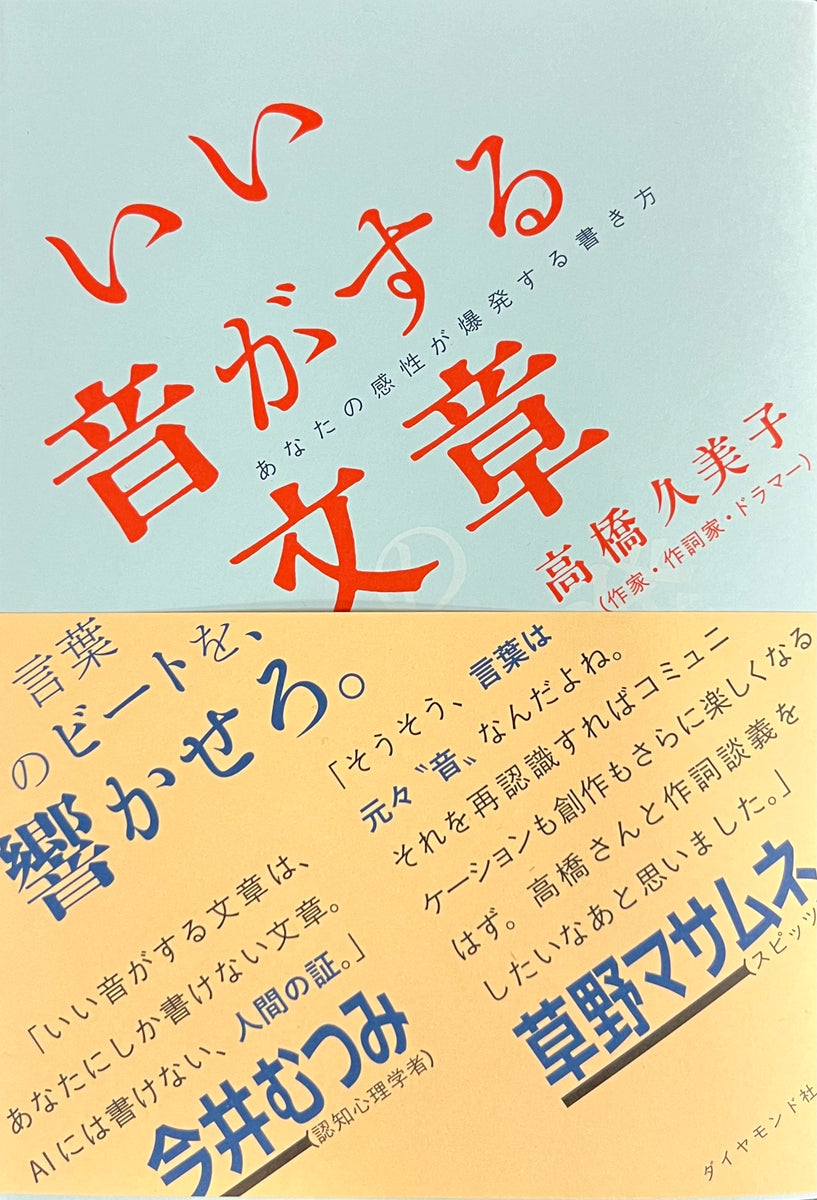 いい
音がする
文章
あなたの感性が爆発する書き方
高橋久美子
(作家・作詞家・ドラマー)
言葉
のビートを、
響かせろ。
「そうそう、言葉は
元々〝音〟なんだよね。
それを再認識すればコミュニ
ケーションも創作もさらに楽しくなる
はず。高橋さんと作詞談義を
したいなあと思いました。」
草野マサムネ
(スピッツ
「いい音がする文章は、
あなたにしか書けない文章。
AIには書けない、人間の証。」
今井むつみ
(認知心理学者)
ダイヤモンド社